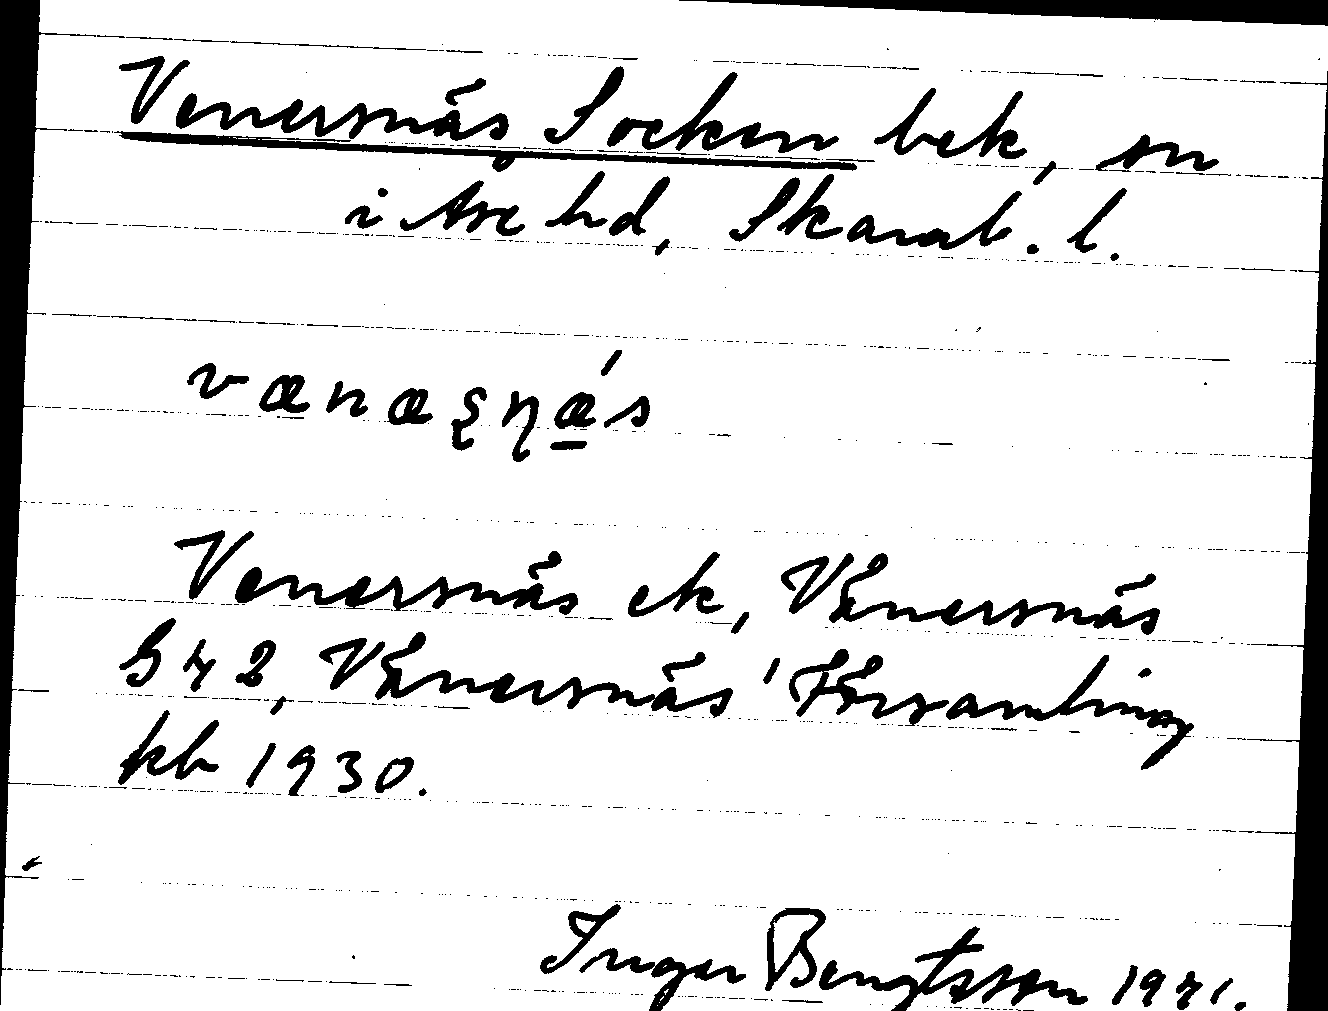 Venersnäs Socken bek, sn
i Åse hd, Skarab. l.
vænæʂɳǽ̲s
Venersnäs ek, Vänersnäs
G 72, Vänersnäs' Församling
kb 1930.
Inger Bengtsson 1971.